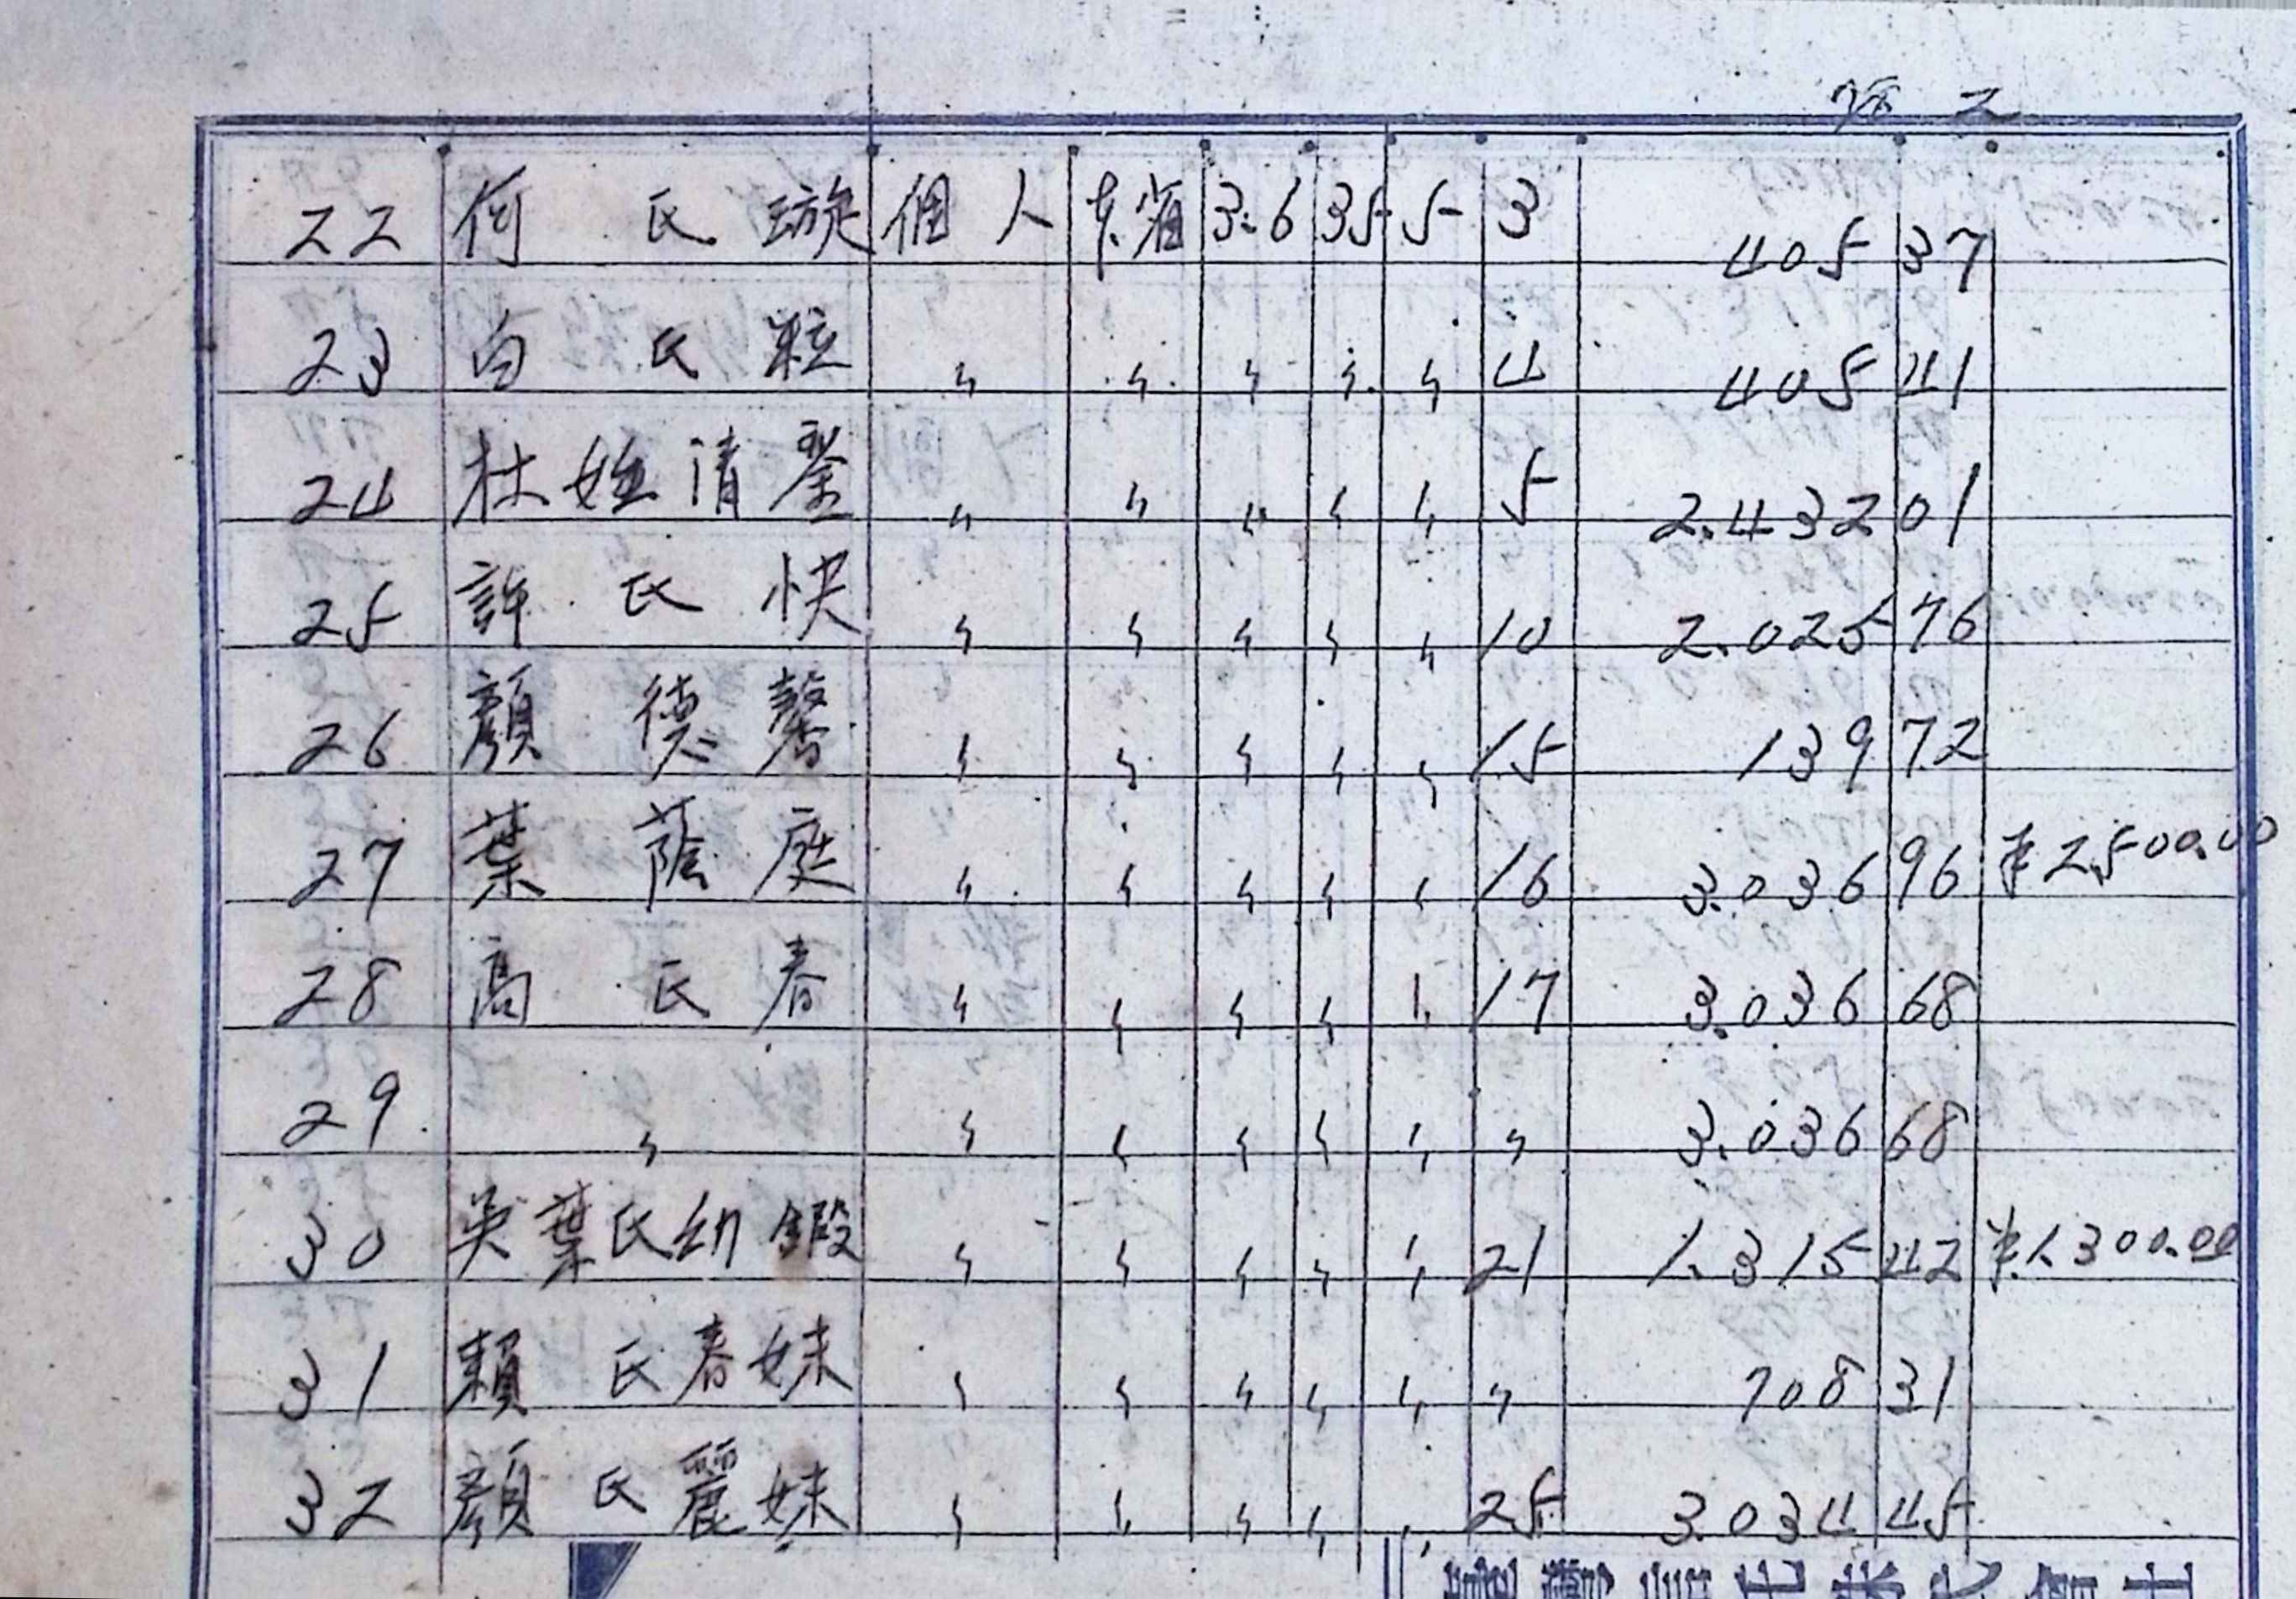 22 何氏璇 個人 3.6 35 5 3 405 37
23 白氏粒 〃 〃 〃 〃 〃 4 405 41
24 杜姓清 〃 〃 〃 〃 〃 5 2.432 01
25 許氏快 〃 〃 〃 〃 〃 10 2.025 76
26 顏德馨 〃 〃 〃 〃 〃 15 139 72
27 葉蔭庭 〃 〃 〃 〃 〃 16 3.036 96 2500.00
28 高氏春 〃 〃 〃 〃 〃 17 3.036 68
29 〃 〃 〃 〃 〃 〃 〃 3.036 68
30 吳葉氏幼鍜 〃 〃 〃 〃 〃 21 1.315 42 1.300.00
31 賴氏春妹 〃 〃 〃 〃 〃 〃 708 31
32 顏氏麗妹 〃 〃 〃 〃 〃 25 3.034 45